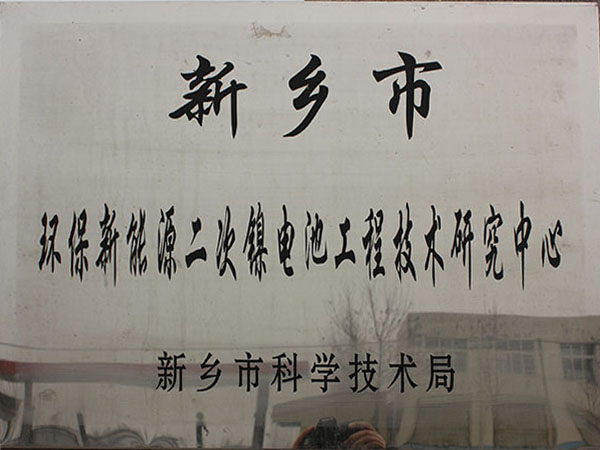 新乡市
环保新能源二次镍电池工程技术研究中心
新乡市科学技术局